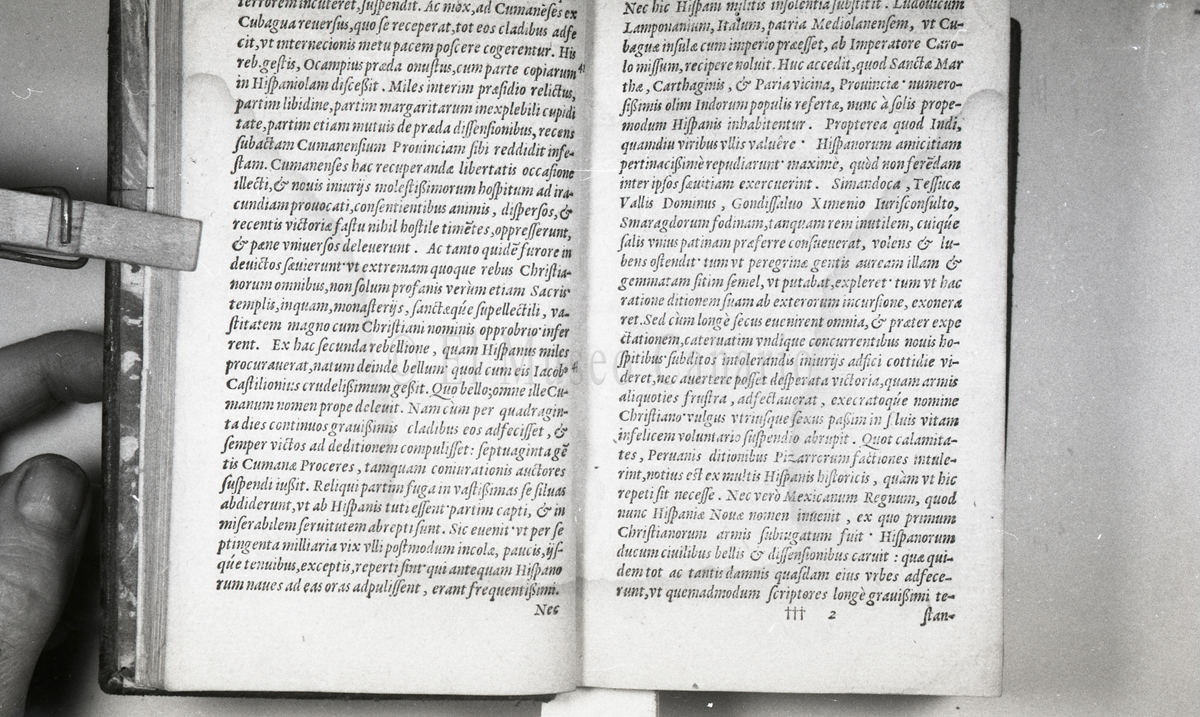 terrorem incuteret, suspendit. Ac mox, ad Cumanẽses ex
Cubagua reuersus, quo se receperat, tot eos cladibus adfe
cit, vt internecionis metu pacem poscere cogerentur. His
reb. gestis, Ocampius præda onustus, cum parte copiarum
in Hispaniolam discessit. Miles interim præsidio relictus,
partim libidine, partim margaritarum inexplebili cupidi
tate, partim etiam mutuis de præda dissensionibus, recens
subactam Cumanensium Prouinciam sibi reddidit infe-
stam. Cumanenses hac recuperandæ libertatis occasione
illecti, & nouis iniurijs molestissimorum hospitum ad ira-
cundiam prouocati, consentientibus animis, dispersos, &
recentis victoriæ fastu nihil hostile timẽtes, oppresserunt,
& pæne vniuersos deleuerunt. Ac tanto quidẽ furore in
deuictos sæuierunt· vt extremam quoque rebus Christia-
norum omnibus, non solum profanis verùm etiam Sacris·
templis, inquam, monasterijs, sanctæqúe supellectili, va-
stitatem magno cum Christiani nominis opprobrio infer
rent. Ex hac secunda rebellione, quam Hispanus miles
procurauerat, natum deinde bellum· quod cum eis Iacobꝰ
Castilionius crudelissimum gessit. Quo bello, omne ille Cu-
manum nomen prope deleuit. Nam cùm per quadragin-
ta dies continuos grauissimis cladibus eos adfecisset, &
semper victos ad deditionem compulisset: septuaginta gẽ
tis Cumanæ Proceres, tamquam coniurationis auctores
suspendi iussit. Reliqui partim fuga in vastissimas se siluas
abdiderunt, vt ab Hispanis tuti essent· partim capti, & in
miserabilem seruitutem abrepti sunt. Sic euenit· vt per se
ptingenta milliaria vix vlli postmodum incolæ, paucis, ijs-
que tenuibus, exceptis, reperti sint· qui antequam Hispano
rum naues ad eas oras adpulissent, erant frequentissimi.
Nec
Nec hic Hispani militis insolentia substitit. Ludouicum
Lamponanium, Italum, patria Mediolanensem, vt Cu-
baguæ insulæ cum imperio præesset, ab Imperatore Caro-
lo missum, recipere noluit. Huc accedit, quod Sanctæ Mar
thæ, Carthaginis, & Paria vicina, Prouinciæ· numero-
sissimis olim Indorum populis refertæ, nunc à solis prope-
modum Hispanis inhabitentur. Propterea quod Indi,
quamdiu viribus vllis valuêre· Hispanorum amicitiam
pertinacissimè repudiarunt· maximè, quòd non ferẽdam
inter ipsos sæuitiam exercuerint. Simandoca, Tessucæ
Vallis Dominus, Gondissaluo Ximenio Iurisconsulto,
Smaragdorum fodinam, tanquam rem inutilem, cuiqúe
salis vnius patinam præferre consueuerat, volens & lu-
bens ostendit· tum vt peregrinæ gentis auream illam &
gemmatam sitim semel, vt putabat, expleret· tum vt hac
ratione ditionem suam ab exterorum incursione, exonera
ret. Sed cùm longè secus euenirent omnia, & præter expe
ctationem, cateruatim vndique concurrentibus nouis ho-
spitibus· subditos intolerandis iniurijs adfici cottidie vi-
deret, nec auertere posset desperata victoria, quam armis
aliquoties frustra, adfectauerat, execratoqúe nomine
Christiano· vulgus vtriusque sexus passim in suis vitam
infelicem voluntario suspendio abrupit. Quot calamita-
tes, Peruanis ditionibus Pizarrorum factiones intule-
rint, notius est ex multis Hispanis historicis, quàm vt hic
repeti sit necesse. Nec verò Mexicanum Regnum, quod
nunc Hispaniæ Nouæ nomen inuenit, ex quo primum
Christianorum armis subiugatum fuit· Hispanorum
ducum ciuilibus bellis & dissensionibus caruit: quæ qui-
dem tot ac tantis damnis quasdam eius vrbes adfece-
runt, vt quemadmodum scriptores longè grauissimi te-
††† 2 stan-
© El Museo Canario